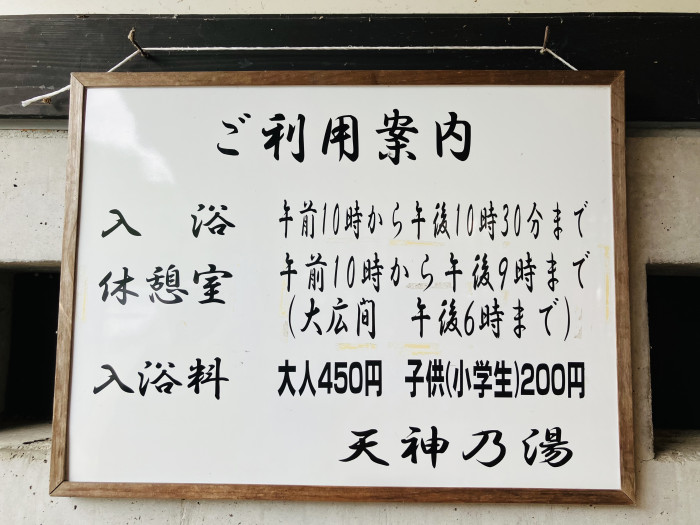 ご利用案内
入浴 午前10時から午後10時30分まで
休憩室 午前10時から午後9時まで
(大広間 午後6時まで)
入浴料 大人450円 子供(小学生)200円
天神乃湯